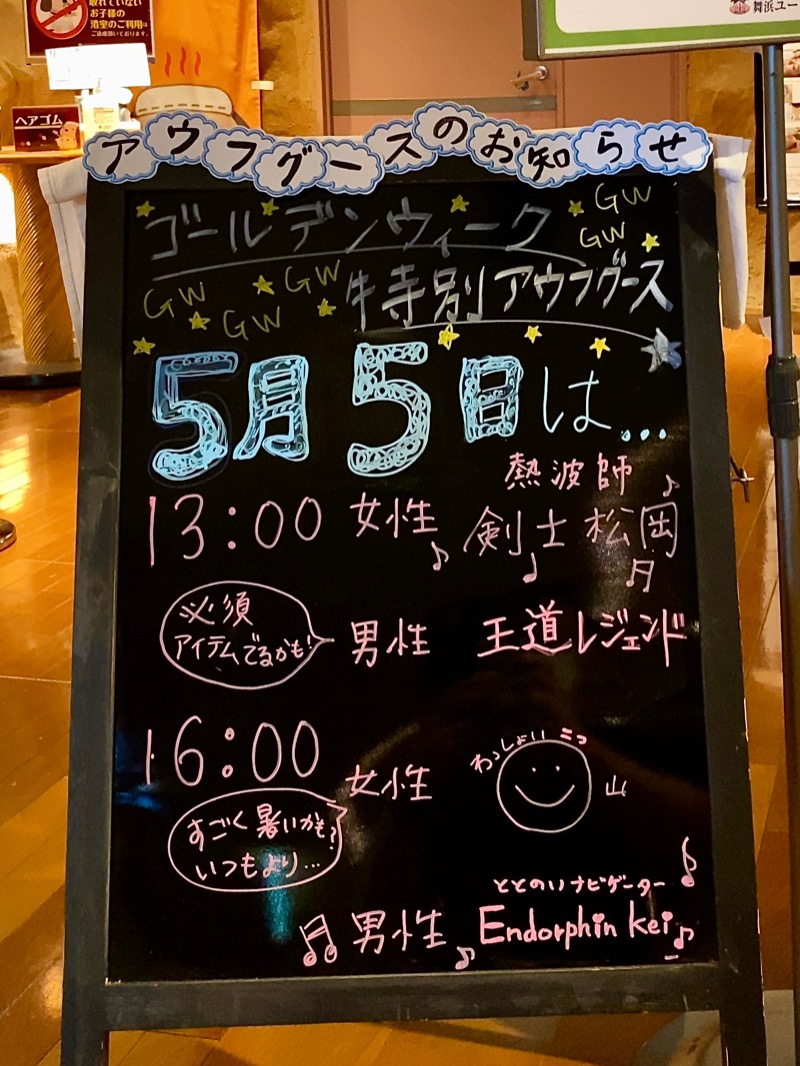 取れていない
お子様の
浴室のご利用は
ご遠慮頂いております。
舞浜ユー
ヘアゴム
アウフグースのお知らせ
ゴールデンウィーク
GW
GW
GW
GW
GW
特別アウフグース
5月5日は...
熱波師
13:00 女性 剣士 松岡
必須
アイテムでるかも!
男性 王道レジェンド
16:00
わっしょい ニコ
女性 山
すごく暑いかも?
いつもより...
ととのいナビゲーター
男性 Endorphin kei